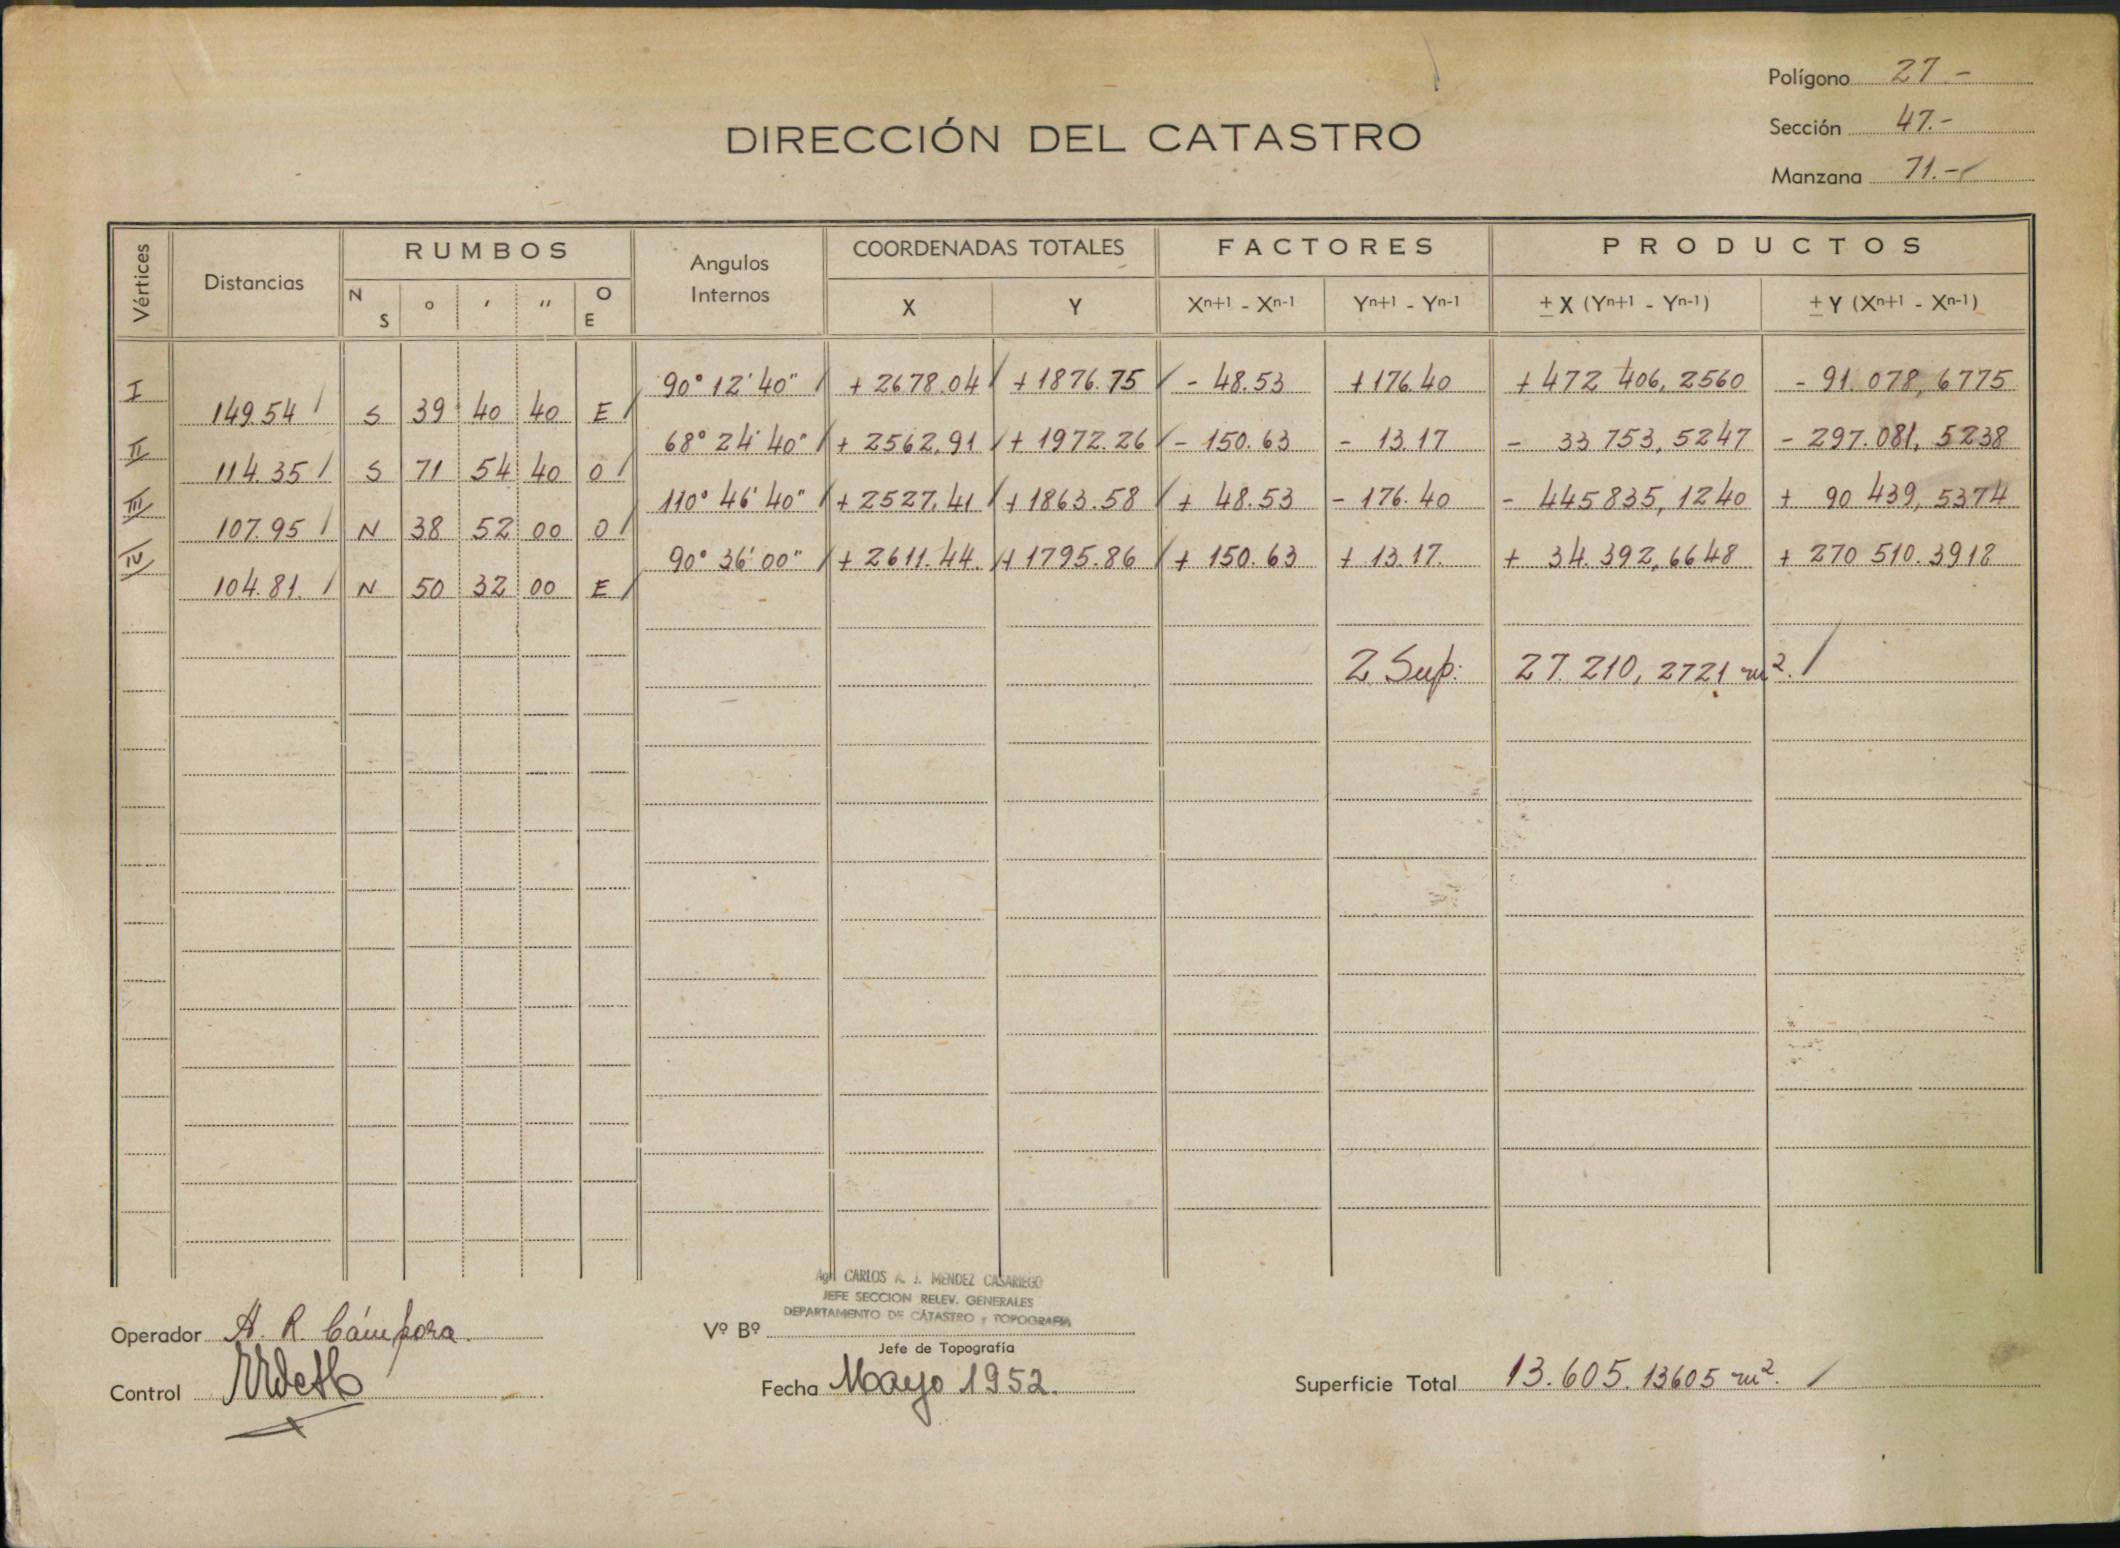 Polígono 27.-
Sección 47.-
Manzana 71.-
DIRECCIÓN DEL CATASTRO
Vértices Distancias RUMBOS Angulos Internos COORDENADAS TOTALES FACTORES PRODUCTOS
N S o ′ ″ O E X Y Xn+1 - Xn-1 Yn+1 - Yn-1 ± X (Yn+1 - Yn-1) ± Y (Xn+1 - Xn-1)
I 90° 12' 40" + 2678.04 + 1876.75 - 48.53 + 176.40 + 472 406,2560 - 91.078,6775
149.54 S 39 40 40 E
II 68° 24' 40" + 2562,91 + 1972.26 - 150.63 - 13.17 - 33 753,5247 - 297.081,5238
114.35 S 71 54 40 O
III 110° 46' 40" + 2527,41 + 1863.58 + 48.53 - 176.40 - 445835,1240 + 90 439,5374
107.95 N 38 52 00 O
IV 90° 36' 00" + 2611.44. + 1795.86 + 150.63 + 13.17. + 34.392,6648 + 270 510.3918
104.81. N 50 32 00 E
2 Sup: 27.210,2721 m².
Agr. CARLOS A. J. MENDEZ CASARIEGO
JEFE SECCION RELEV. GENERALES
DEPARTAMENTO DE CATASTRO y TOPOGRAFIA
Operador A. R. Cámpora.
Vº Bº
Jefe de Topografía
Control
Fecha Mayo 1952.
Superficie Total 13.605.13605 m².